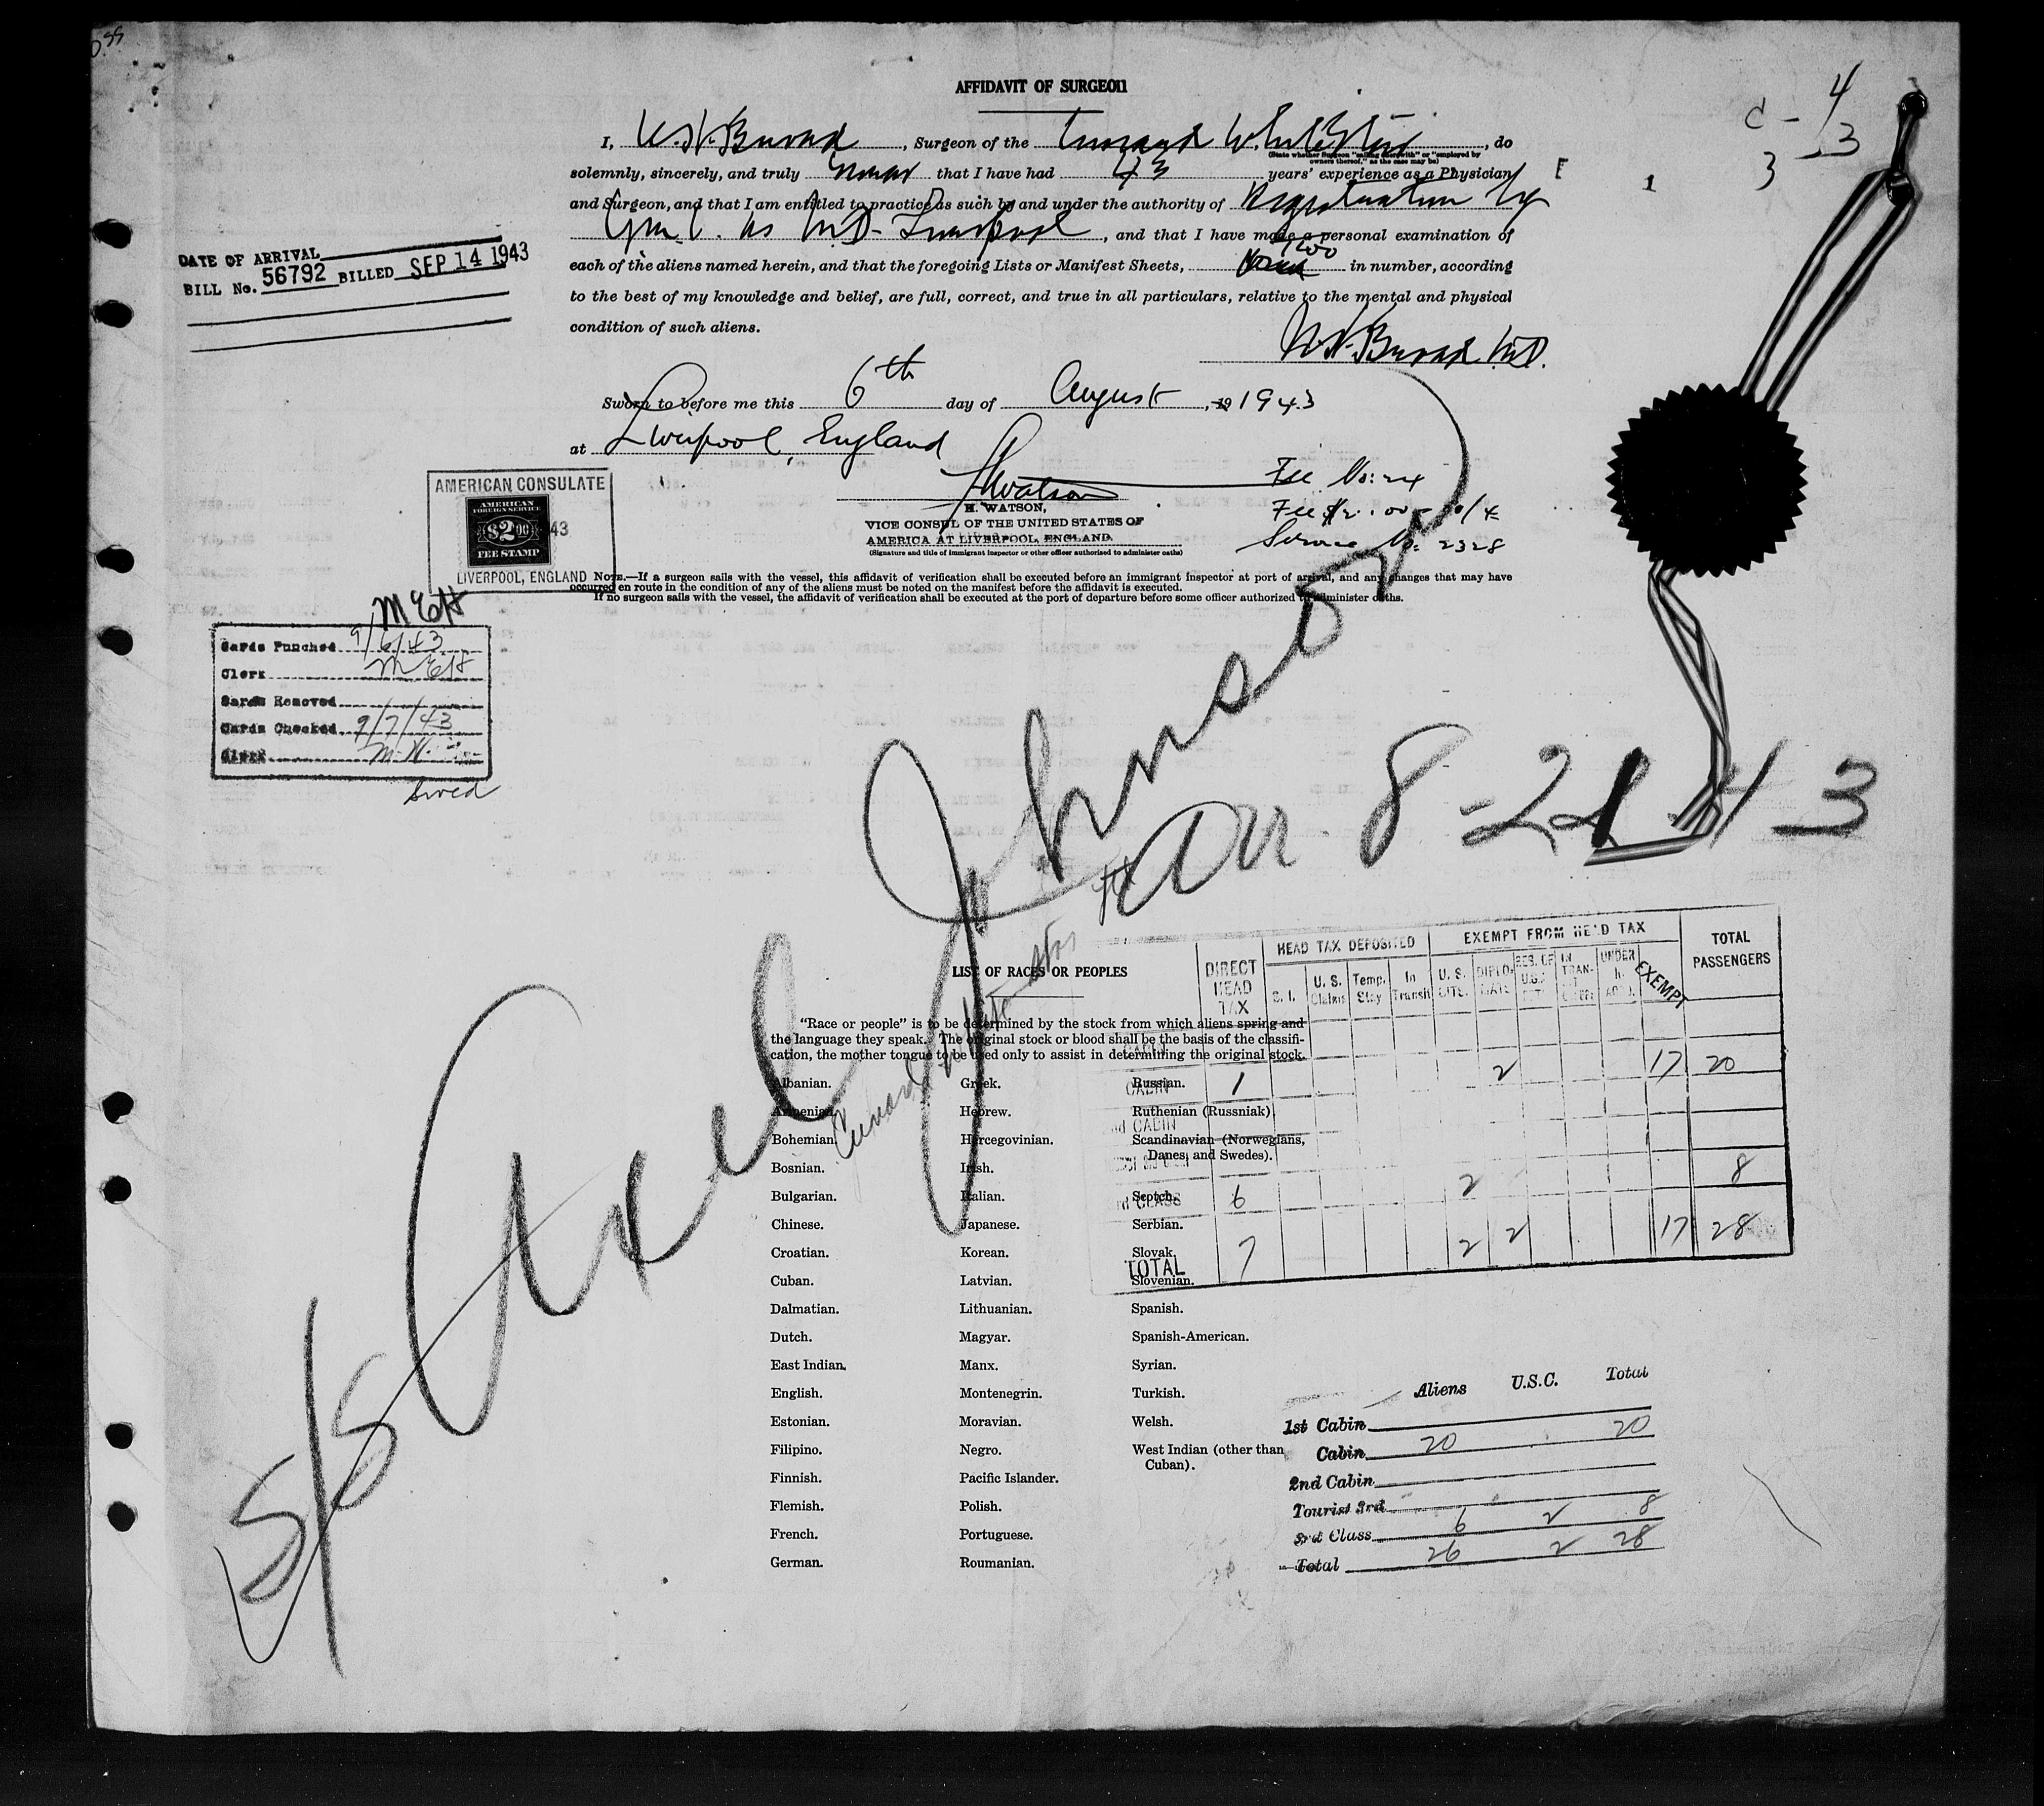 AFFIDAVIT OF SURGEON
I, , Surgeon of the Cunard White Star , do
(State whether Surgeon "sailing therewith" or "employed by
owners thereof," as the case may be)
solemnly, sincerely, and truly swear that I have had 43 years' experience as a Physician
and Surgeon, and that I am entitled to practice as such by and under the authority of Registration by
as M.D. Liverpool , and that I have made a personal examination of
each of the aliens named herein, and that the foregoing Lists or Manifest Sheets, in number, according
to the best of my knowledge and belief, are full, correct, and true in all particulars, relative to the mental and physical
condition of such aliens.
Sworn to before me this 6th day of August , 19 1943
at Liverpool, England
DATE OF ARRIVAL
BILL No. 56792 BILLED SEP 14 1943
AMERICAN CONSULATE
AMERICAN
FOREIGN SERVICE
$2.00
43
FEE STAMP
LIVERPOOL, ENGLAND
HWatson
H. WATSON,
VICE CONSUL OF THE UNITED STATES OF
AMERICA AT LIVERPOOL, ENGLAND.
(Signature and title of immigrant inspector or other officer authorized to administer oaths)
Fee No: 24
Service No: 2328
NOTE.—If a surgeon sails with the vessel, this affidavit of verification shall be executed before an immigrant inspector at port of arrival, and any changes that may have
occurred en route in the condition of any of the aliens must be noted on the manifest before the affidavit is executed.
If no surgeon sails with the vessel, the affidavit of verification shall be executed at the port of departure before some officer authorized to administer oaths.
MEH
Cards Punched 9/6/43
Clerk MEH
Cards Removed
Cards Checked 9/7/43
Clerk
S/S Axel Johnson
Arr. 8-21-43
Cunard White Star
LIST OF RACES OR PEOPLES
"Race or people" is to be determined by the stock from which aliens spring and
the language they speak. The original stock or blood shall be the basis of the classifi-
cation, the mother tongue to be used only to assist in determining the original stock.
Albanian.
Armenian.
Bohemian.
Bosnian.
Bulgarian.
Chinese.
Croatian.
Cuban.
Dalmatian.
Dutch.
East Indian.
English.
Estonian.
Filipino.
Finnish.
Flemish.
French.
German.
Greek.
Hebrew.
Hercegovinian.
Irish.
Italian.
Japanese.
Korean.
Latvian.
Lithuanian.
Magyar.
Manx.
Montenegrin.
Moravian.
Negro.
Pacific Islander.
Polish.
Portuguese.
Roumanian.
Russian.
Ruthenian (Russniak)
Scandinavian (Norwegians,
Danes, and Swedes).
Scotch.
Serbian.
Slovak.
Slovenian.
Spanish.
Spanish-American.
Syrian.
Turkish.
Welsh.
West Indian (other than
Cuban).
DIRECT HEAD TAX
HEAD TAX DEPOSITED
EXEMPT FROM HEAD TAX
TOTAL PASSENGERS
S. I. U. S. Claims Temp. Stay In Transit U. S. CITS. DIPLO-MATS EXEMPT
CABIN 1 2 17 20
CABIN
CLASS 6 2 8
TOTAL 7 2 2 17 28
Aliens U.S.C. Total
1st Cabin
Cabin 20 20
2nd Cabin
Tourist 3rd
3rd Class 6 2 8
Total 26 2 28